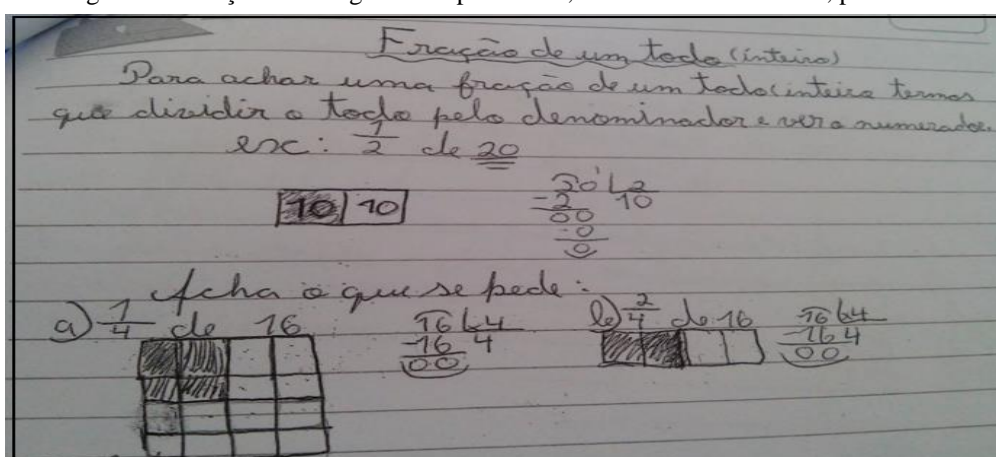 Fração de um todo (inteiro)
Para achar uma fração de um todo (inteiro temos
que dividir o todo pelo denominador e ver o numerador.
ex: 1/2 de 20
10 10
20 2
-2 10
00
-0
0
Acha o que se pede:
a) 1/4 de 16
16 4
-16 4
00
b) 2/4 de 16
16 4
-16 4
00